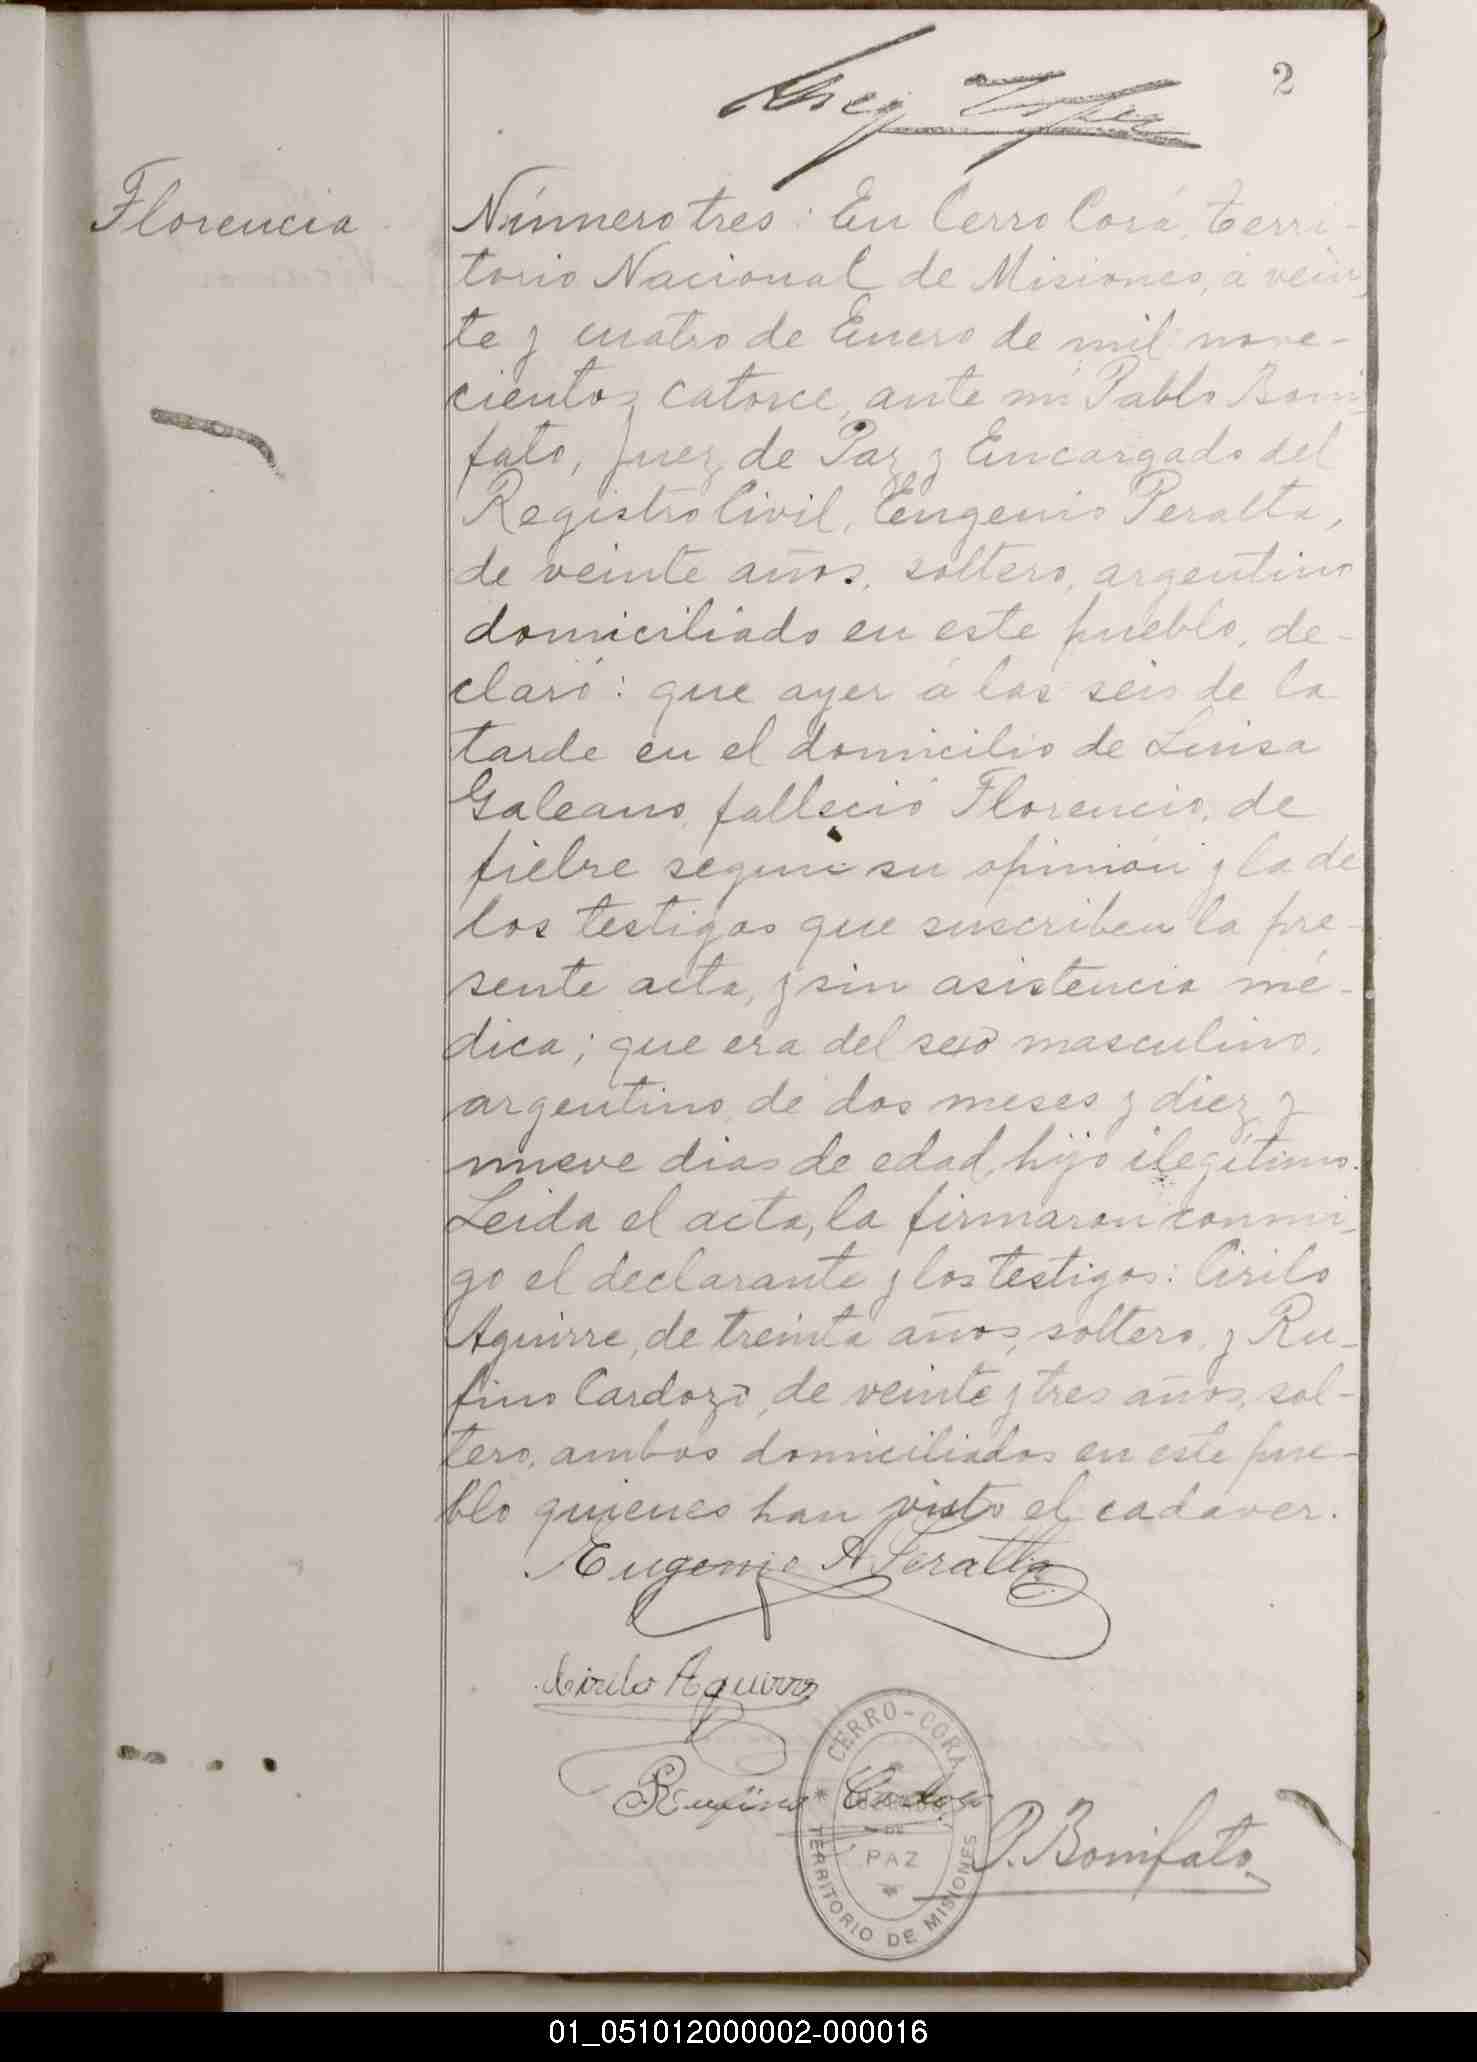 2
Florencia
Número tres: En Cerro Corá, Terri-
torio Nacional de Misiones, á vein
te y cuatro de Enero de mil nove-
cientos catorce, ante mi Pablo Boni
fato, Juez de Paz y Encargado del
Registro Civil, Eugenio Peralta,
de veinte años, soltero, argentino
domiciliado en este pueblo, de-
claró: que ayer á las seis de la
tarde en el domicilio de Luisa
Galeano, falleció Florencio, de
fiebre segun su opinión y la de
los testigos que suscriben la pre-
sente acta, y sin asistencia mé-
dica; que era del sexo masculino,
argentino, de dos meses y diez y
nueve dias de edad, hijo ilegítimo.
Leida el acta, la firmaron conmi-
go el declarante y los testigos: Cirilo
Aguirre, de treinta años, soltero, y Ru-
fino Cardozo, de veinte y tres años, sol-
tero, ambos domiciliados en este pue-
blo quienes han visto el cadaver.
Eugenio A Peralta
Cirilo Aguirre
Rufino Cardozo
P. Bonifato
CERRO-CORA
DE
PAZ
TERRITORIO DE MISIONES
01_051012000002-000016